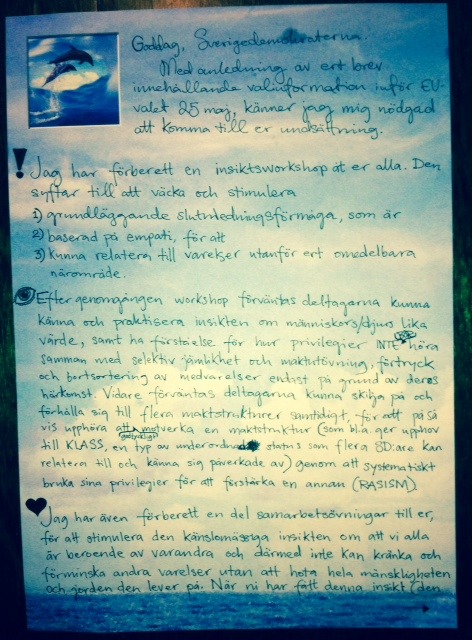 Goddag, Sverigedemokraterna.
Med anledning av ert brev
innehållande valinformation inför EU-
valet 25 maj, känner jag mig nödgad
att komma till er undsättning.
! Jag har förberett en insiktsworkshop åt er alla. Den
syftar till att väcka och stimulera
1) grundläggande slutledningsförmåga, som är
2) baserad på empati, för att
3) kunna relatera till varelser utanför ert omedelbara
närområde.
Efter genomgången workshop förväntas deltagarna kunna
känna och praktisera insikten om människors/djurs lika
värde, samt ha förståelse för hur privilegier INTE höra
samman med selektiv jämlikhet och maktutövning, förtryck
och bortsortering av medvarelser endast på grund av deras
härkomst. Vidare förväntas deltagarna kunna skilja på och
förhålla sig till flera maktstrukturer samtidigt, för att på så
vis upphöra att motverka en maktstruktur (som bl.a ger upphov
till KLASS, en typ av underordnad status som flera SD:are kan
relatera till och känna sig påverkade av) genom att systematiskt
bruka sina privilegier för att förstärka en annan (RASISM).
Jag har även förberett en del samarbetsövningar till er,
för att stimulera den känslomässiga insikten om att vi alla
är beroende av varandra och därmed inte kan kränka och
förminska andra varelser utan att hota hela mänskligheten
och jorden den lever på. När ni har fått denna insikt (den